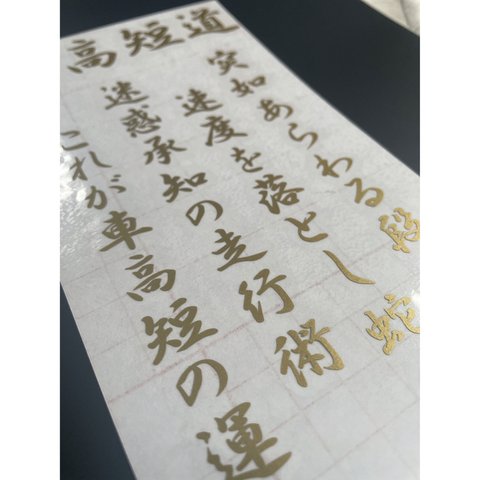 高短道
突如あらわる段
速度を落とし蛇
迷惑承知の走行術
これが車高短の運